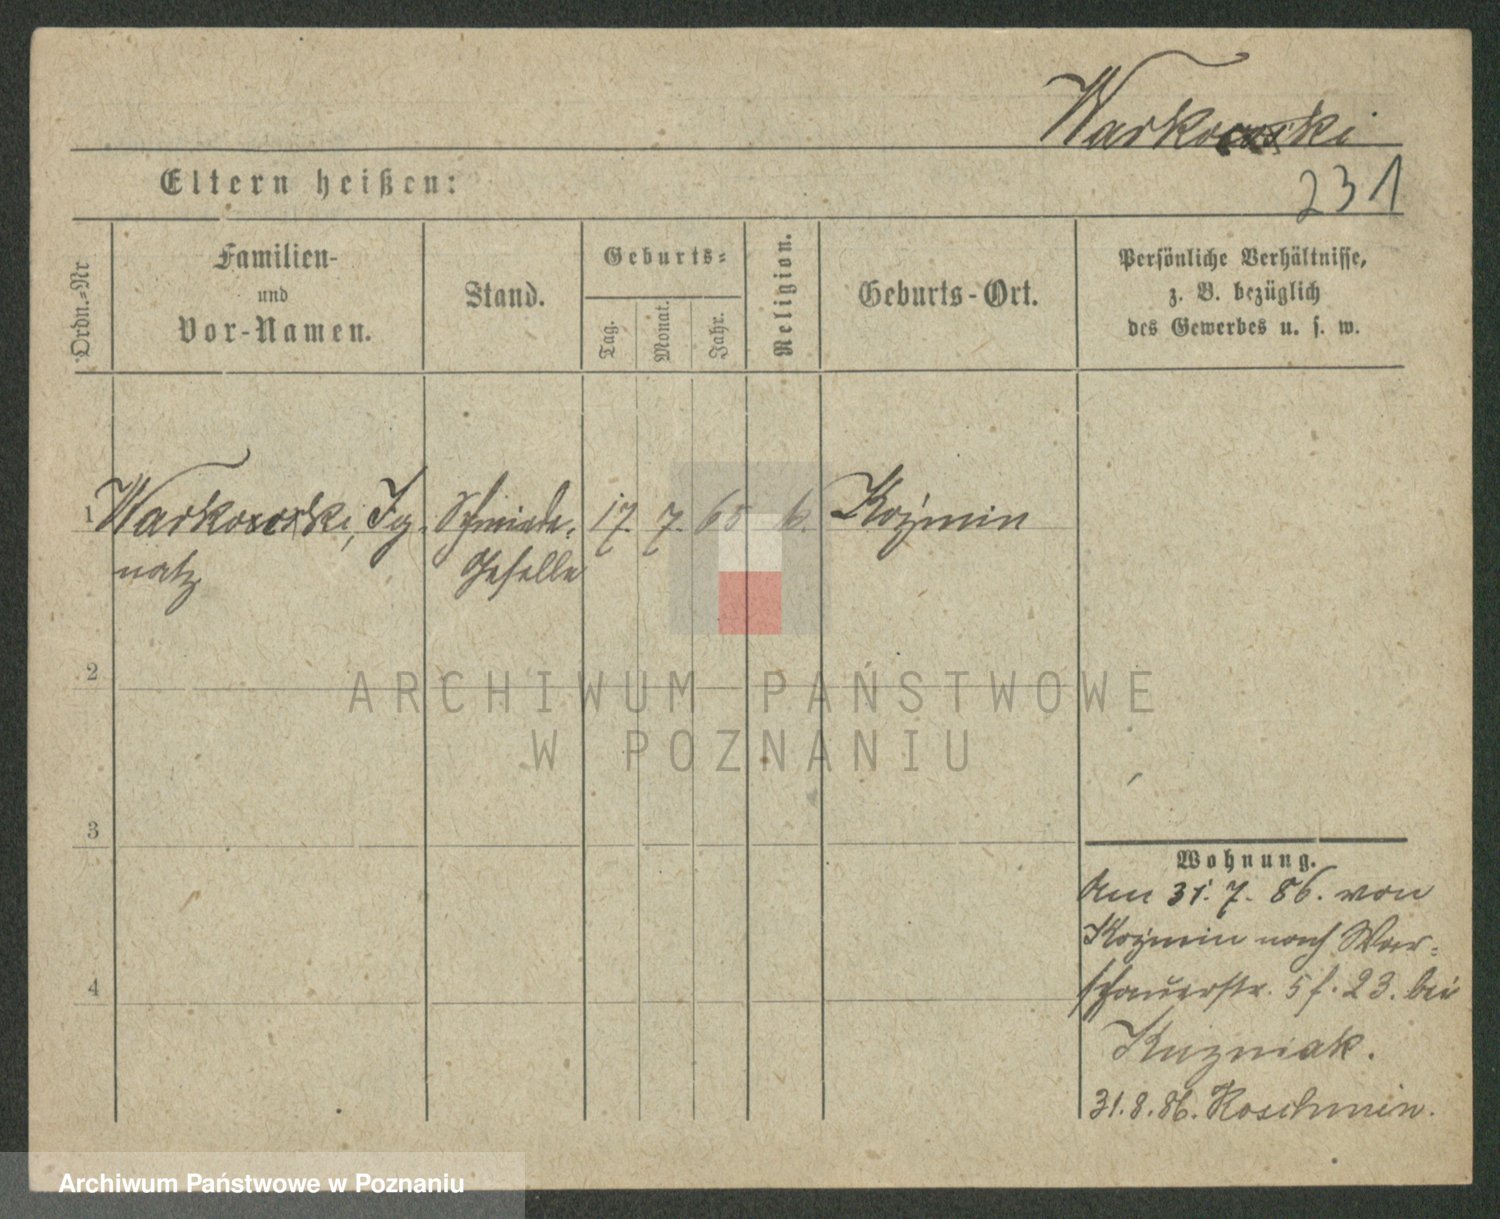 Warkowski
Eltern heißen:
231
Ordn.-Nr
Familien-
und
Vor-Namen.
Stand.
Geburts-
Tag.
Monat.
Jahr.
Religion.
Geburts-Ort.
Persönliche Verhältnisse,
z. B. bezüglich
des Gewerbes u. s. w.
1 Warkowski, Ig- Schmiede- 17. 7. 65 k. Kozmin
natz Geselle
2
ARCHIWUM PAŃSTWOWE
W POZNANIU
3
Wohnung.
Am 31. 7. 86. von
Kozmin nach War-
4
schauerstr. 5 f. 23. bei
Kuzniak.
31.8.86. Koschmin.
Archiwum Państwowe w Poznaniu